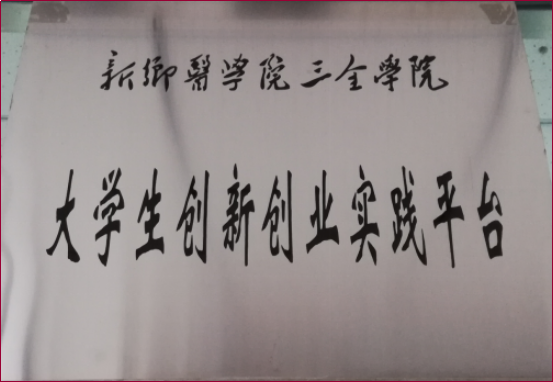 新鄉醫學院三全學院
大学生创新创业实践平台